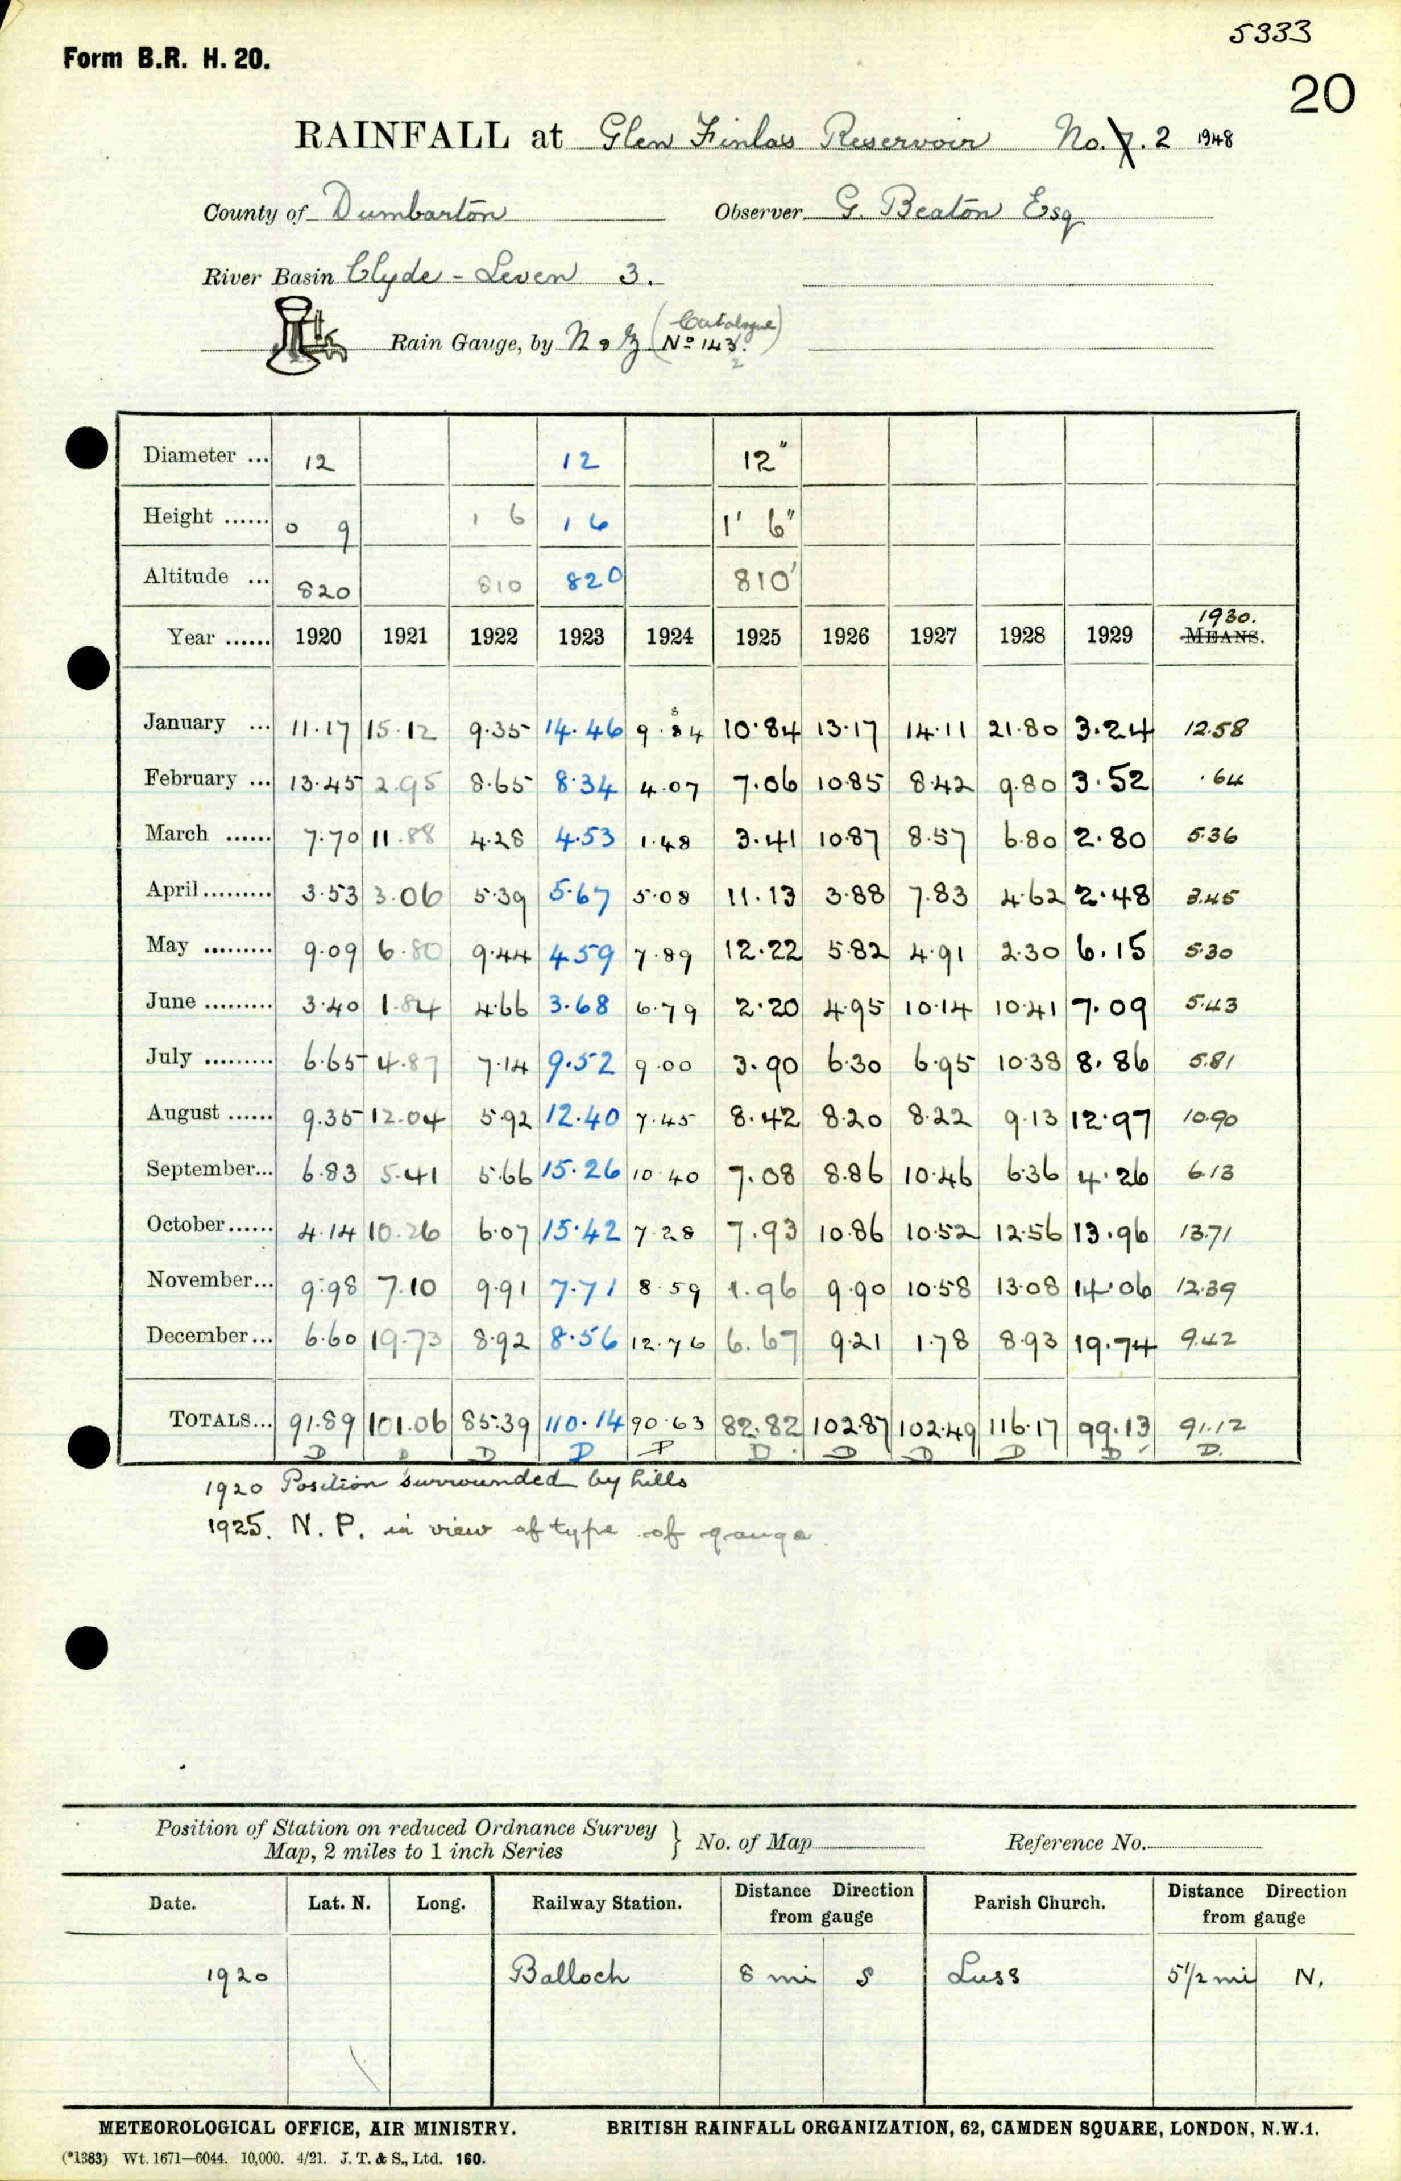 5333
Form B.R. H. 20.
20
RAINFALL at Glen Finlas Reservoir No. 7. 2 1948
County of Dumbarton Observer G. Beaton Esq
River Basin Clyde - Leven 3.
Rain Gauge, by N & Z (Catalogue No 143.) 2
Diameter ... 12 12 12"
Height ...... 0 9 1 6 1 6 1' 6"
Altitude ... 820 810 820 810'
1930.
Year ...... 1920 1921 1922 1923 1924 1925 1926 1927 1928 1929 MEANS.
January ... 11.17 15.12 9.35 14.46 9.84 10.84 13.17 14.11 21.80 3.24 12.58
February ... 13.45 2.95 8.65 8.34 4.07 7.06 10.85 8.42 9.80 3.52 .64
March ...... 7.70 11.88 4.28 4.53 1.48 3.41 10.87 8.57 6.80 2.80 5.36
April ......... 3.53 3.06 5.39 5.67 5.08 11.13 3.88 7.83 4.62 2.48 3.45
May ......... 9.09 6.80 9.44 4.59 7.89 12.22 5.82 4.91 2.30 6.15 5.30
June ......... 3.40 1.84 4.66 3.68 6.79 2.20 4.95 10.14 10.41 7.09 5.43
July ......... 6.65 4.87 7.14 9.52 9.00 3.90 6.30 6.95 10.38 8.86 5.81
August ...... 9.35 12.04 5.92 12.40 7.45 8.42 8.20 8.22 9.13 12.97 10.90
September... 6.83 5.41 5.66 15.26 10.40 7.08 8.86 10.46 6.36 4.26 6.13
October ...... 4.14 10.26 6.07 15.42 7.28 7.93 10.86 10.52 12.56 13.96 13.71
November... 9.98 7.10 9.91 7.71 8.59 1.96 9.90 10.58 13.08 14.06 12.39
December ... 6.60 19.73 8.92 8.56 12.76 6.67 9.21 1.78 8.93 19.74 9.42
TOTALS... 91.89 101.06 85.39 110.14 90.63 82.82 102.87 102.49 116.17 99.13 91.12
D D D D P D D D D D D.
1920 Position surrounded by hills
1925. N. P. in view of type of gauge.
Position of Station on reduced Ordnance Survey Map, 2 miles to 1 inch Series } No. of Map Reference No.
Date. Lat. N. Long. Railway Station. Distance Direction from gauge Parish Church. Distance Direction from gauge
1920 Balloch 8 mi S Luss 5 1/2 mi N.
METEOROLOGICAL OFFICE, AIR MINISTRY. BRITISH RAINFALL ORGANIZATION, 62, CAMDEN SQUARE, LONDON, N.W.1.
(*1383) Wt. 1671—6044. 10,000. 4/21. J. T. & S., Ltd. 160.